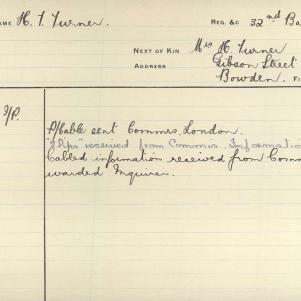 NAME H. T. Turner. REG. &c 32nd Ba
NEXT OF KIN Mrs H. Turner
ADDRESS Gibson Street
Bowden.
3/P. P/Cable sent Commis. London.
"Slips" received from Commis. Informatio
Cabled information received from Com
warded Inquirer.